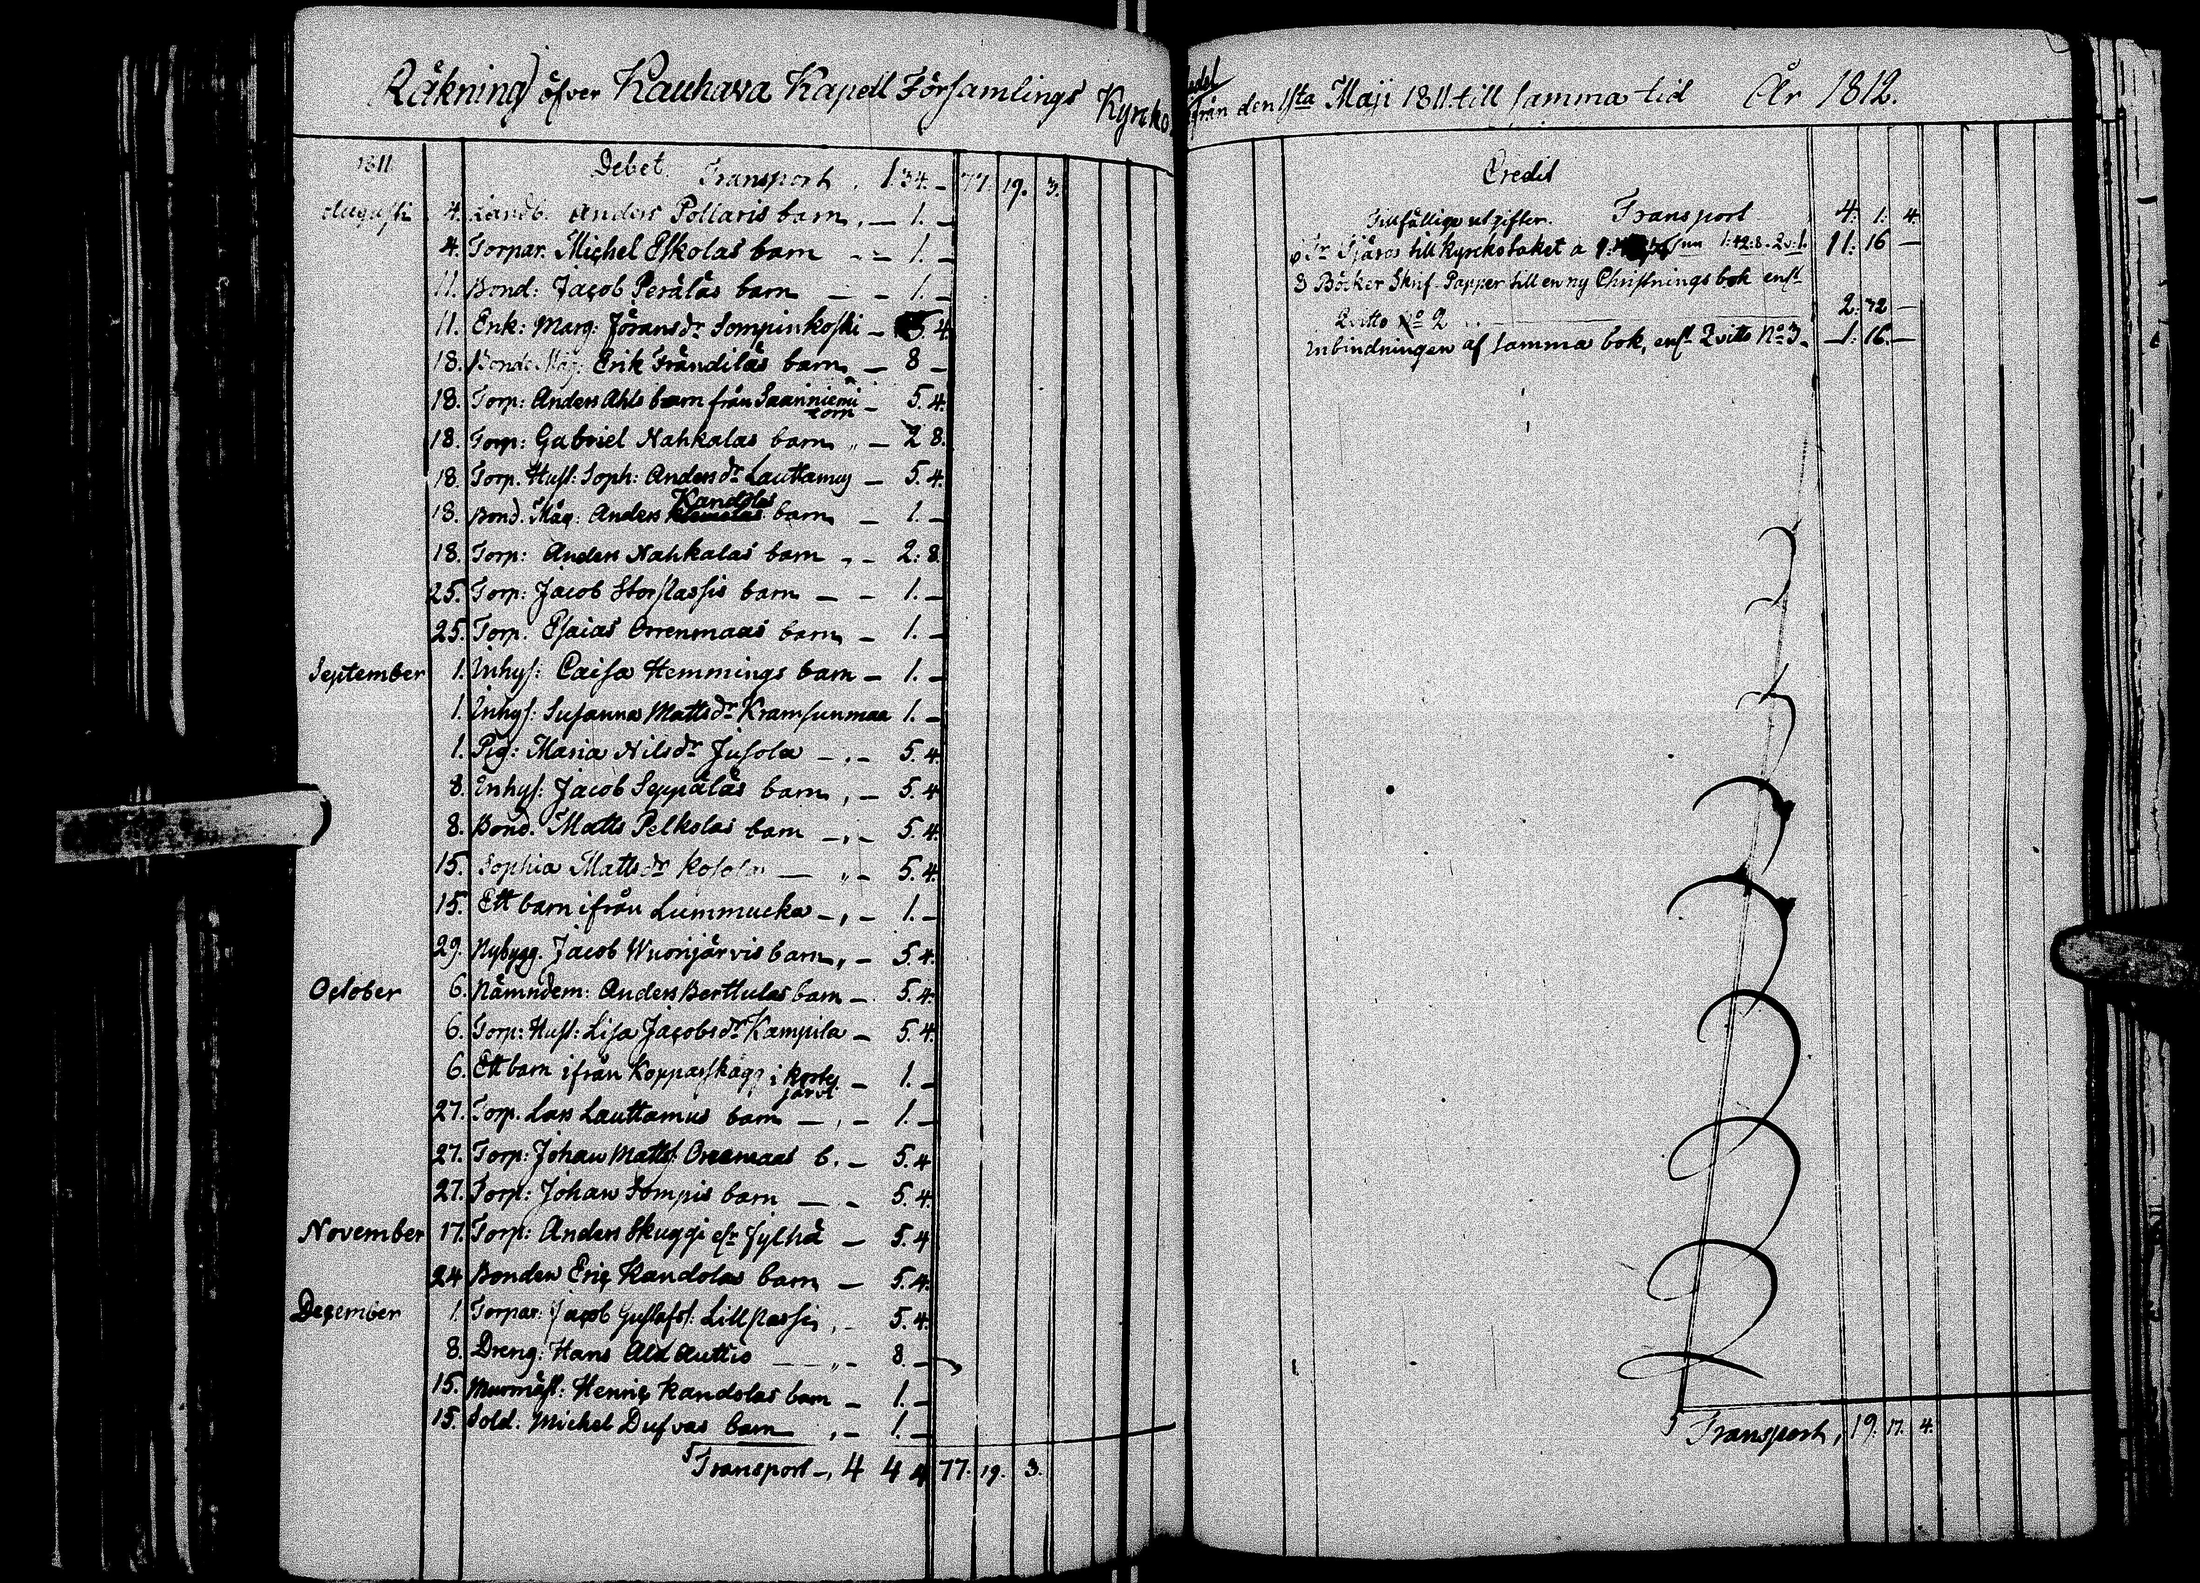 Räkning öfver Kauhava Kapell Församlings Kyrko
medel
ifrån den 1sta Maji 1811 till samma tid År 1812.
1811 Debet. Transport, 1.34.- 77. 19. 3.
Augusti 4. Landb. Anders Pollaris barn, - 1. -
4. Torpar. Michel Eskolas barn - - 1. -
11. Bond: Jacob Peräläs barn - - 1. -
11. Enk: Marg: Jöransdr Sompinkoski - 5. 4.
18. Bond. Måg: Erik Frändiläs barn - 8 -
18. Torp: Anders Ahls barn från Saariniemi torp - 5. 4.
18. Torp: Gabriel Nahkalas barn „ - 2 8.
18. Torp. Hust: Soph: Andersdr Lauttamus - 5. 4.
18. Bond. Måg: Anders Kandolas barn - 1. -
18. Torp: Anders Nahkalas barn „ - 2: 8.
25. Torp: Jacob Storpassis barn - - 1. -
25. Torp. Esaias Orrenmaas barn - 1. -
September 1. Inhys: Caisa Hemmings barn - 1. -
1. Inhys: Susanna Mattsdr Kramsunmaa 1. -
1. Pig: Maria Nilsdr Jusola - . - 5. 4.
8. Inhys: Jacob Seppäläs barn, - 5. 4
8. Bond. Matts Pelkolas barn - . - 5. 4.
15. Sophia Mattsdr Kosola - „ - 5. 4.
15. Ett barn ifrån Lummucka - , - 1. -
29. Nybygg. Jacob Wuorijärvis barn, - 5. 4.
October 6. Nämndem: Anders Berttulas barn - 5. 4.
6. Torp: Hust: Lisa Jacobsdr Kampila - 5. 4.
6. Ett barn ifrån Koppasskägs i Kortesjärvi - 1. -
27. Torp. Lars Lauttamus barn - , - 1. -
27. Torp: Johan Matts: Orrenmaas b. - 5. 4
27. Torp: Johan Sompis barn - . - 5. 4.
November 17. Torp: Anders Skuggi elr Jylhä - 5. 4
24 Bonden Eric Kandolas barn - 5. 4.
December 1. Torpar: Jacob Gustafs: Lillpassi, - 5. 4.
8. Dreng: Hans Ala Auttio - „ - 8. -
15. Murmäst: Henric Kandolas barn - 1. -
15. Sold. Michel Dufvas barn „ - 1. -
Transport -, 4 4 4 77. 19. 3.
Credit
Tillfällige utgifter. Transport 4. 1. 4.
Tr Tjära till kyrkotaket a 1:42:8. 2v:1. 11: 16 -
3 Böcker Skrif Papper till en ny Christnings bok enst
Qvitto No 2 2: 32 -
Inbindningen af samma bok, enst Qvitto No 3. -1: 16. -
Transport, 19. 17. 4.